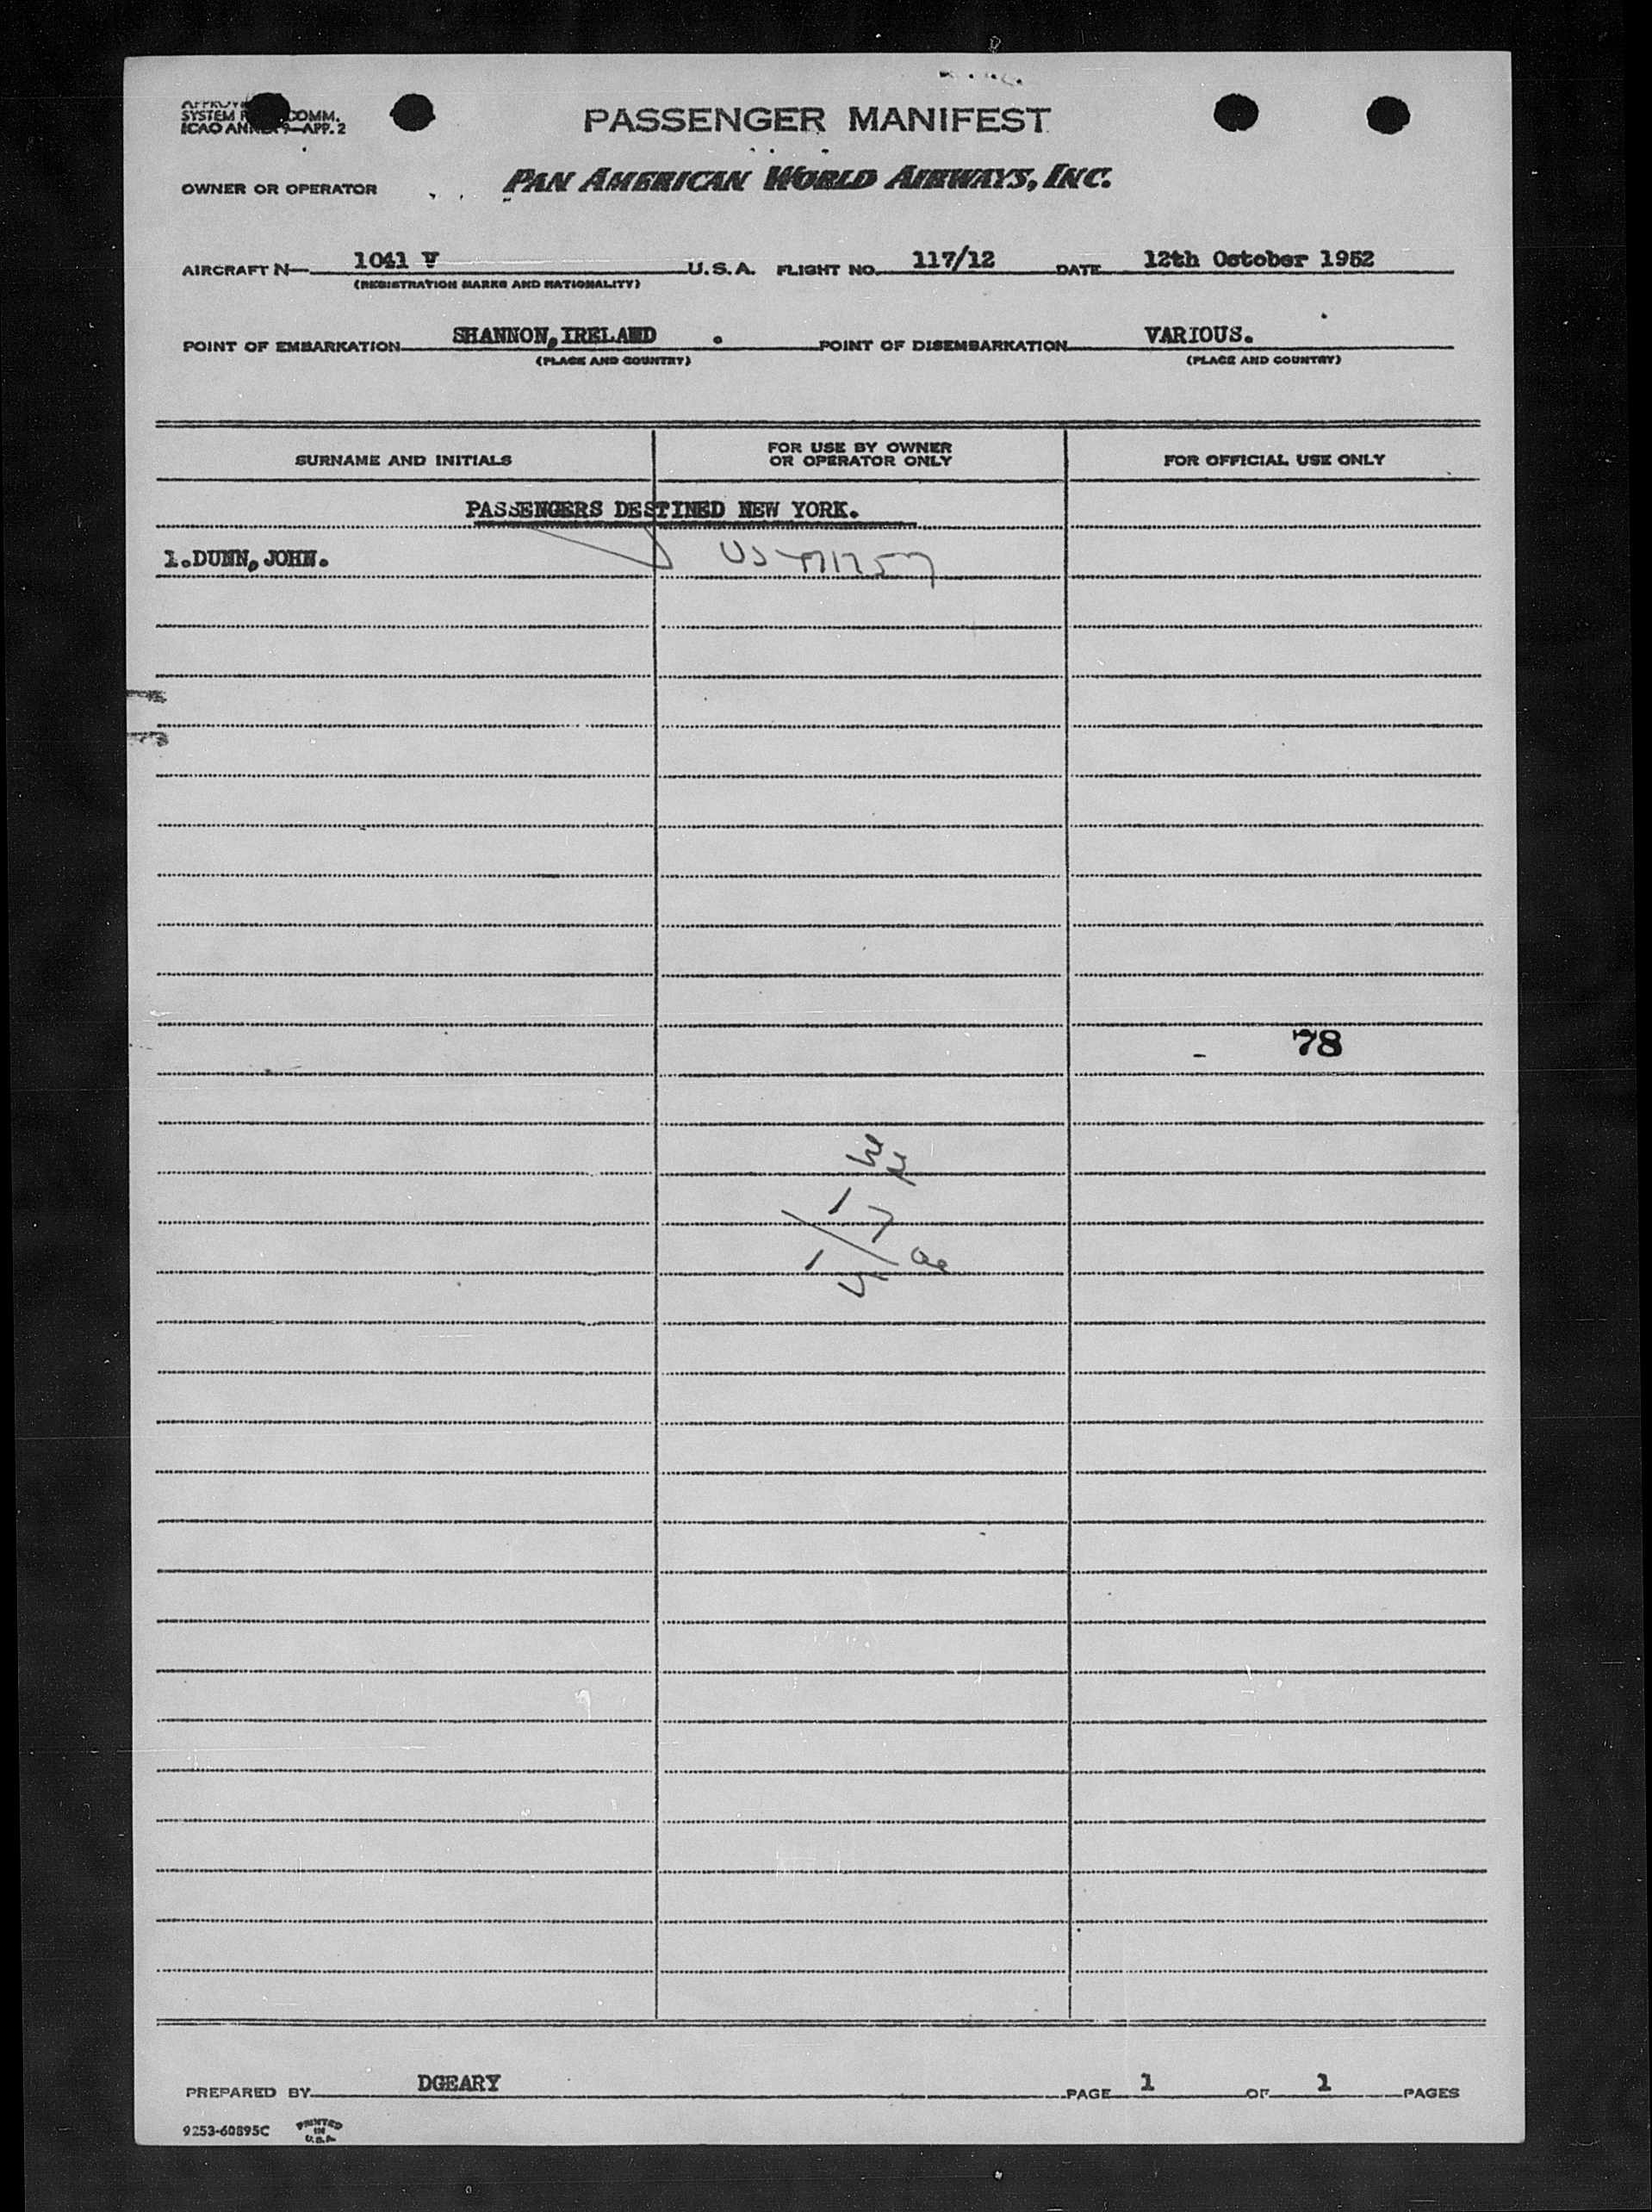 SYSTEM COMM.
ICAO ANNEX 9—APP. 2
PASSENGER MANIFEST
OWNER OR OPERATOR PAN AMERICAN WORLD AIRWAYS, INC.
AIRCRAFT N— 1041 V U.S.A. FLIGHT NO. 117/12 DATE 12th October 1952
(REGISTRATION MARKS AND NATIONALITY)
POINT OF EMBARKATION SHANNON, IRELAND . POINT OF DISEMBARKATION VARIOUS.
(PLACE AND COUNTRY) (PLACE AND COUNTRY)
SURNAME AND INITIALS FOR USE BY OWNER OR OPERATOR ONLY FOR OFFICIAL USE ONLY
PASSENGERS DESTINED NEW YORK.
1.DUNN, JOHN. US
78
PREPARED BY DGEARY PAGE 1 OF 1 PAGES
9253-60895C PRINTED IN U.S.A.